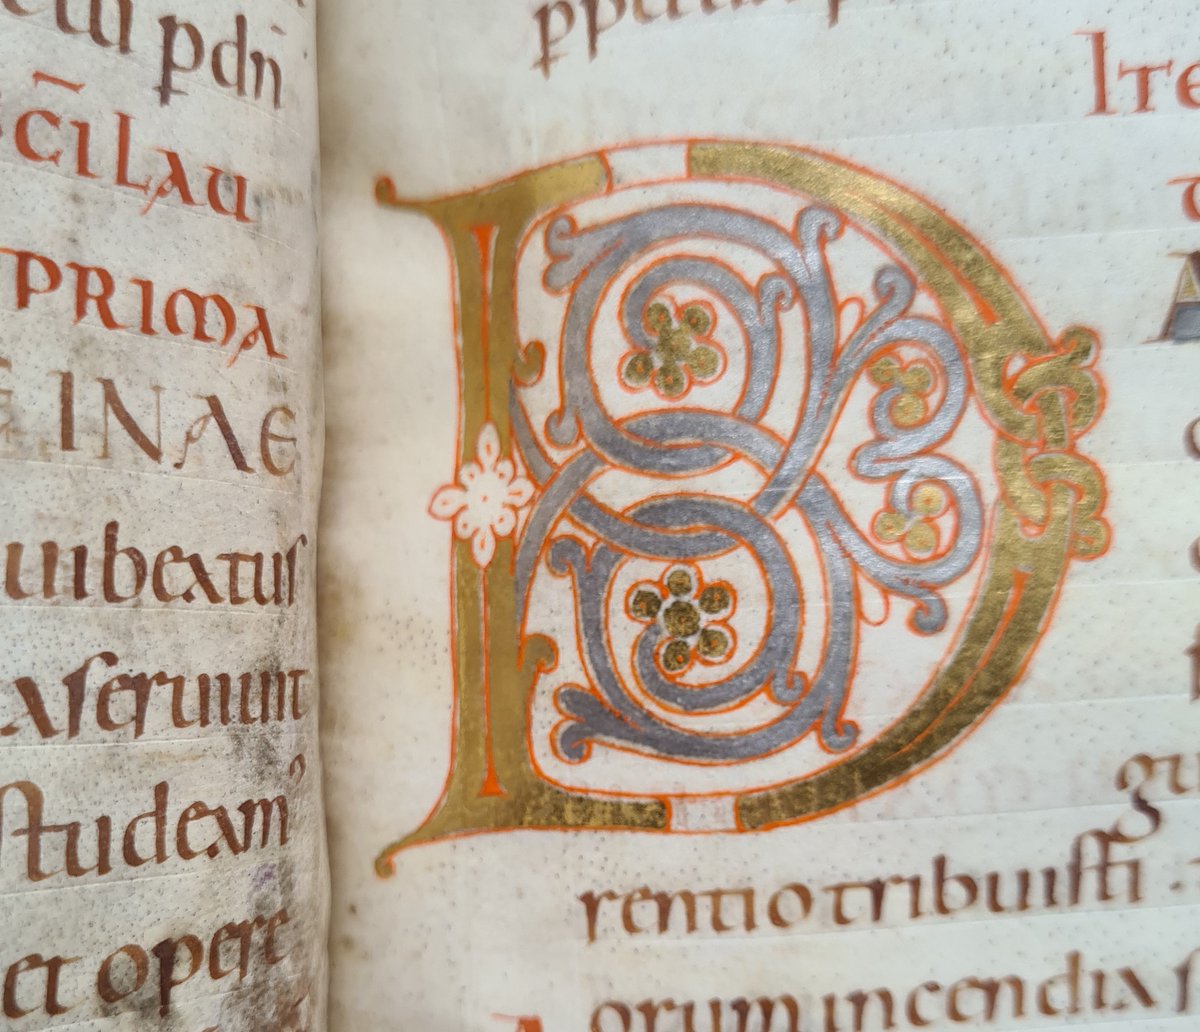 pdn̄
c̄ı LAU
PRIMA
INAE
uibeatuſ
aſeruiunt
ſtudeam
et opere
Ite
D
gu
rentio tribuiſti ·
orum incendia ſ